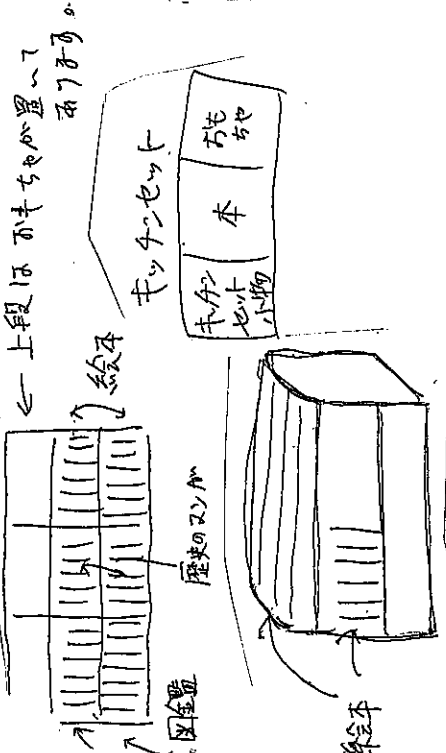 ← 上段はおもちゃが置いて
あります。
絵本
歴史のマンガ
図鑑
キッチンセット
キッチン
セット
小物
本
おも
ちゃ
絵本